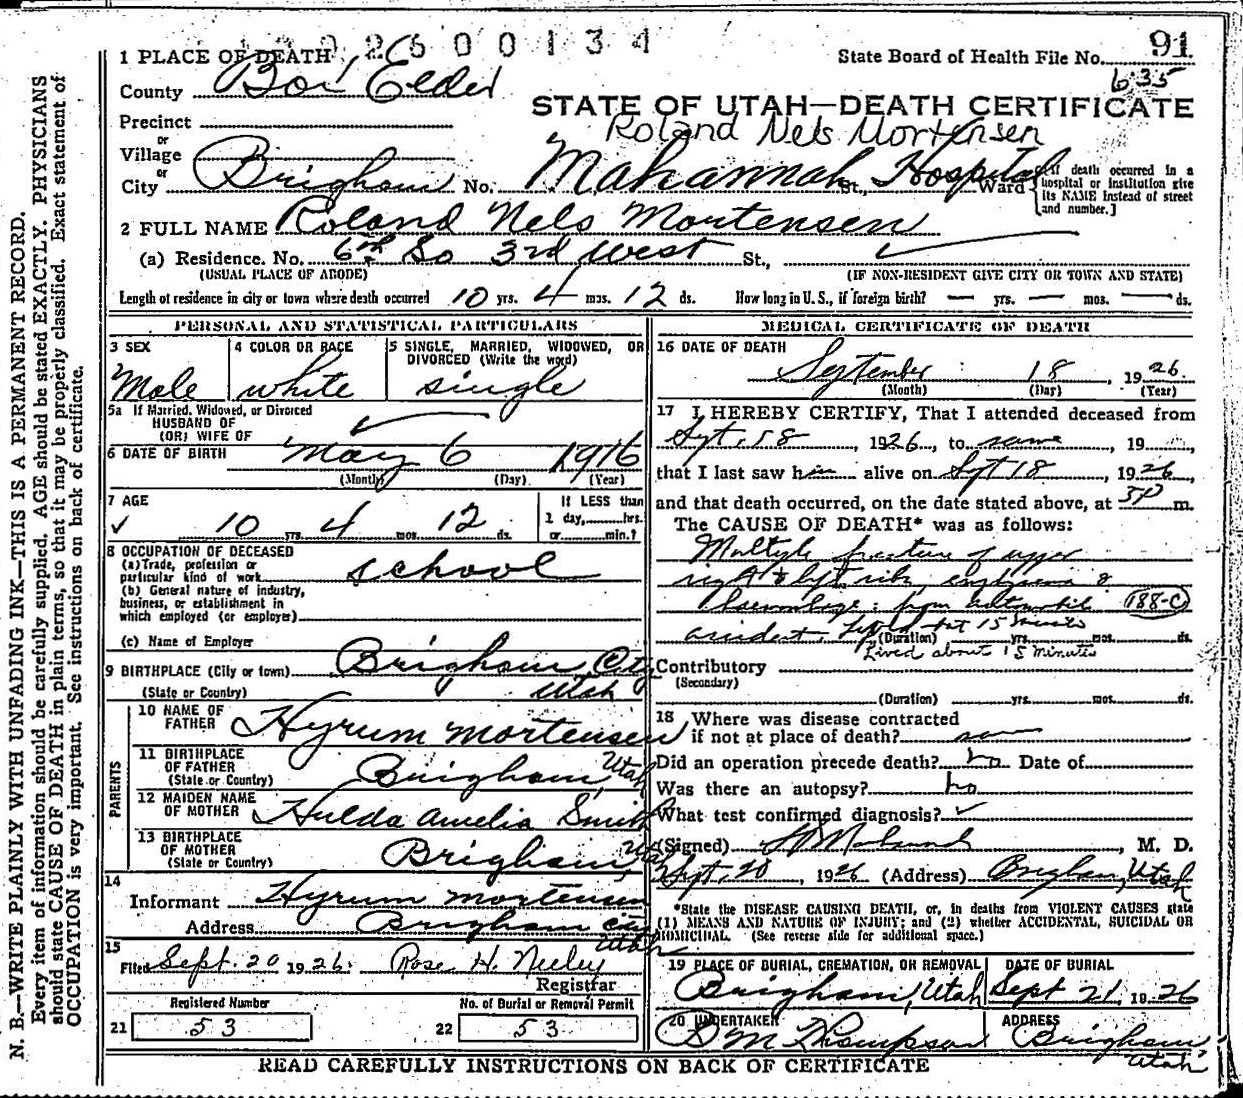 1 9 0 2 6 0 0 1 3 4
91
1 PLACE OF DEATH
State Board of Health File No.
635
County Box Elder
STATE OF UTAH—DEATH CERTIFICATE
Precinct
Roland Nels Mortensen
or
Village
or
City Brigham No. Mahannah St., Hospital Ward
[If death occurred in a hospital or institution give its NAME instead of street and number.]
2 FULL NAME Roland Nels Mortensen
(a) Residence. No. 6th So 3rd West St.,
(USUAL PLACE OF ABODE) (IF NON-RESIDENT GIVE CITY OR TOWN AND STATE)
Length of residence in city or town where death occurred 10 yrs. 4 mos. 12 ds. How long in U.S., if foreign birth? — yrs. — mos. — ds.
PERSONAL AND STATISTICAL PARTICULARS
3 SEX
Male
4 COLOR OR RACE
white
5 SINGLE, MARRIED, WIDOWED, OR DIVORCED (Write the word)
single
5a If Married, Widowed, or Divorced
HUSBAND OF
(OR) WIFE OF
6 DATE OF BIRTH May 6 1916
(Month) (Day) (Year)
7 AGE
10 yrs. 4 mos. 12 ds.
If LESS than
1 day,......hrs.
or......min.?
8 OCCUPATION OF DECEASED
(a) Trade, profession or
particular kind of work school
(b) General nature of industry,
business, or establishment in
which employed (or employer)
(c) Name of Employer
9 BIRTHPLACE (City or town) Brigham City
(State or Country) Utah
PARENTS
10 NAME OF
FATHER Hyrum Mortensen
11 BIRTHPLACE
OF FATHER
(State or Country) Brigham, Utah
12 MAIDEN NAME
OF MOTHER Hulda Amelia Smith
13 BIRTHPLACE
OF MOTHER
(State or Country) Brigham, Utah
14
Informant Hyrum Mortensen
Address Brigham City
Utah
15
Filed Sept. 20 1926. Rose H. Neeley
Registrar
Registered Number
21 53
No. of Burial or Removal Permit
22 53
MEDICAL CERTIFICATE OF DEATH
16 DATE OF DEATH
September 18, 1926.
(Month) (Day) (Year)
17 I HEREBY CERTIFY, That I attended deceased from
Sept. 18, 1926, to same, 19
that I last saw him alive on Sept 18, 1926,
and that death occurred, on the date stated above, at m.
The CAUSE OF DEATH* was as follows:
Multyle fracture of upper
right & left ribs, &
from automobile 188-C
accident. 15 minutes
(Duration) yrs. mos. ds.
Lived about 15 minutes
Contributory
(Secondary)
(Duration) yrs. mos. ds.
18 Where was disease contracted
if not at place of death?
Did an operation precede death? no Date of
Was there an autopsy? no
What test confirmed diagnosis?
(Signed) , M. D.
Sept. 20, 1926 (Address) Brigham, Utah
*State the DISEASE CAUSING DEATH, or, in deaths from VIOLENT CAUSES state
(1) MEANS AND NATURE OF INJURY; and (2) whether ACCIDENTAL, SUICIDAL OR
HOMICIDAL. (See reverse side for additional space.)
19 PLACE OF BURIAL, CREMATION, OR REMOVAL
Brigham, Utah
DATE OF BURIAL
Sept 21, 1926
20 UNDERTAKER
Thompson
ADDRESS
Brigham,
Utah
READ CAREFULLY INSTRUCTIONS ON BACK OF CERTIFICATE
N. B.—WRITE PLAINLY WITH UNFADING INK—THIS IS A PERMANENT RECORD.
Every item of information should be carefully supplied. AGE should be stated EXACTLY. PHYSICIANS
should state CAUSE OF DEATH in plain terms, so that it may be properly classified. Exact statement of
OCCUPATION is very important. See instructions on back of certificate.